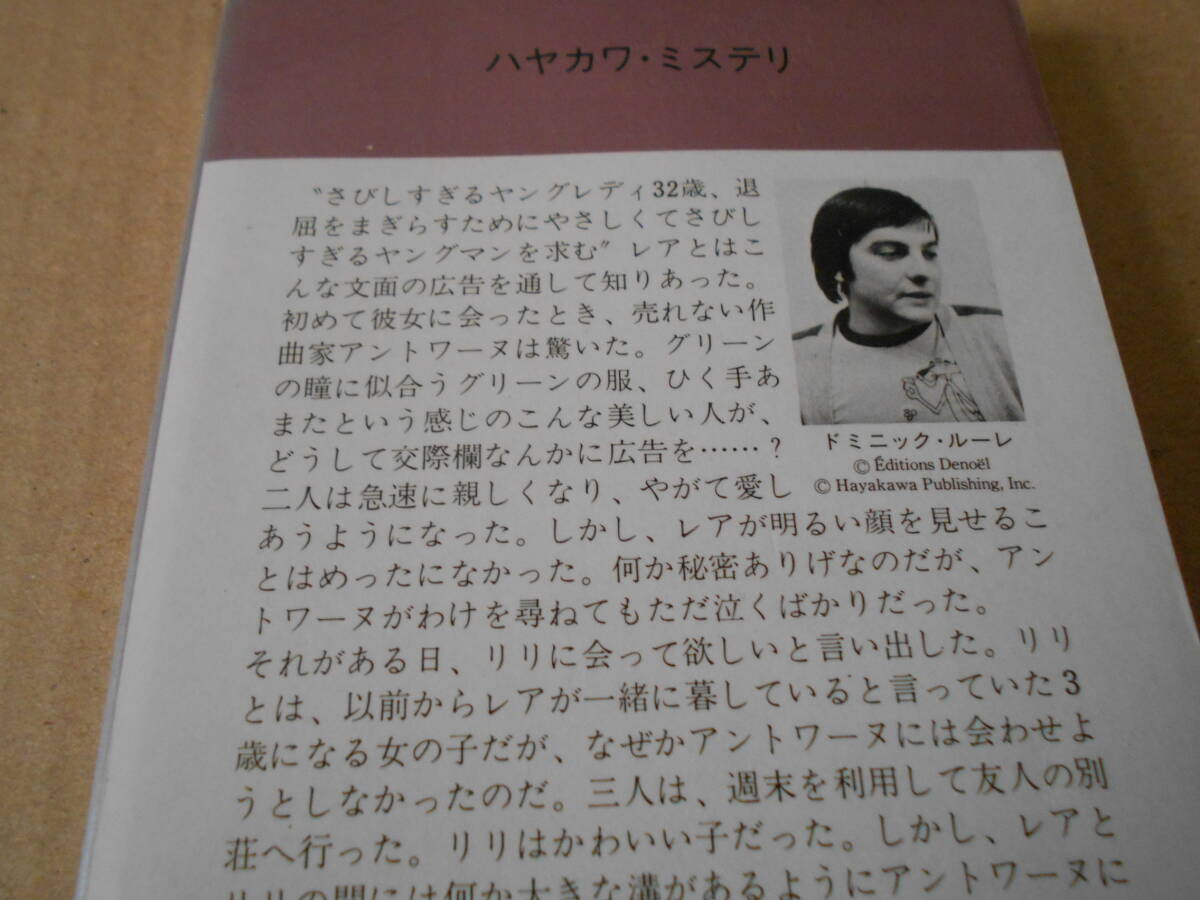 ハヤカワ・ミステリ
〝さびしすぎるヤングレディ32歳、退
屈をまぎらすためにやさしくてさびし
すぎるヤングマンを求む〟レアとはこ
んな文面の広告を通して知りあった。
初めて彼女に会ったとき、売れない作
曲家アントワーヌは驚いた。グリーン
の瞳に似合うグリーンの服、ひく手あ
またという感じのこんな美しい人が、
どうして交際欄なんかに広告を……？
二人は急速に親しくなり、やがて愛し
あうようになった。しかし、レアが明るい顔を見せるこ
とはめったになかった。何か秘密ありげなのだが、アン
トワーヌがわけを尋ねてもただ泣くばかりだった。
それがある日、リリに会って欲しいと言い出した。リリ
とは、以前からレアが一緒に暮していると言っていた3
歳になる女の子だが、なぜかアントワーヌには会わせよ
うとしなかったのだ。三人は、週末を利用して友人の別
荘へ行った。リリはかわいい子だった。しかし、レアと
リリの間には何か大きな溝があるようにアントワーヌに
ドミニック・ルーレ
© Éditions Denoël
© Hayakawa Publishing, Inc.